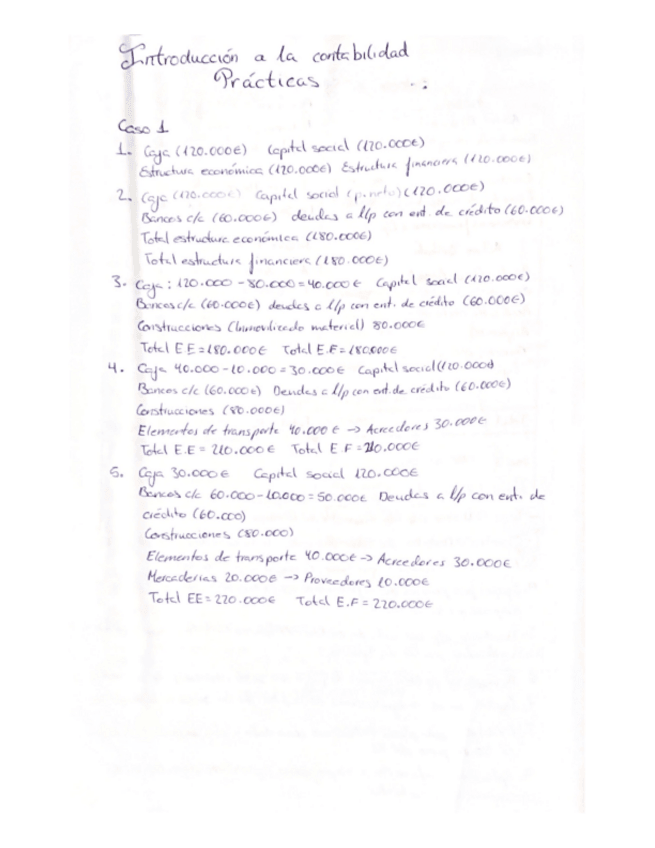 Introducción a la contabilidad
Prácticas
Caso 1
1. Caja (120.000€) Capital social (120.000€)
Estructura económica (120.000€) Estructura financiera (120.000€)
2. Caja (120.000€) Capital social (p. neto) (120.000€)
Bancos c/c (60.000€) deudas a l/p con ent. de crédito (60.000€)
Total estructura económica (180.000€)
Total estructura financiera (180.000€)
3. Caja: 120.000 - 80.000 = 40.000€ Capital social (120.000€)
Bancos c/c (60.000€) deudas a l/p con ent. de crédito (60.000€)
Construcciones (Inmovilizado material) 80.000€
Total EE = 180.000€ Total E.F = 180.000€
4. Caja 40.000 - 10.000 = 30.000€ Capital social (120.000€)
Bancos c/c (60.000€) Deudas a l/p con ent. de crédito (60.000€)
Construcciones (80.000€)
Elementos de transporte 40.000€ -> Acreedores 30.000€
Total E.E = 210.000€ Total E.F = 210.000€
5. Caja 30.000€ Capital social 120.000€
Bancos c/c 60.000 - 10.000 = 50.000€ Deudas a l/p con ent. de
crédito (60.000)
Construcciones (80.000)
Elementos de transporte 40.000€ -> Acreedores 30.000€
Mercaderías 20.000€ -> Proveedores 10.000€
Total EE = 220.000€ Total E.F = 220.000€